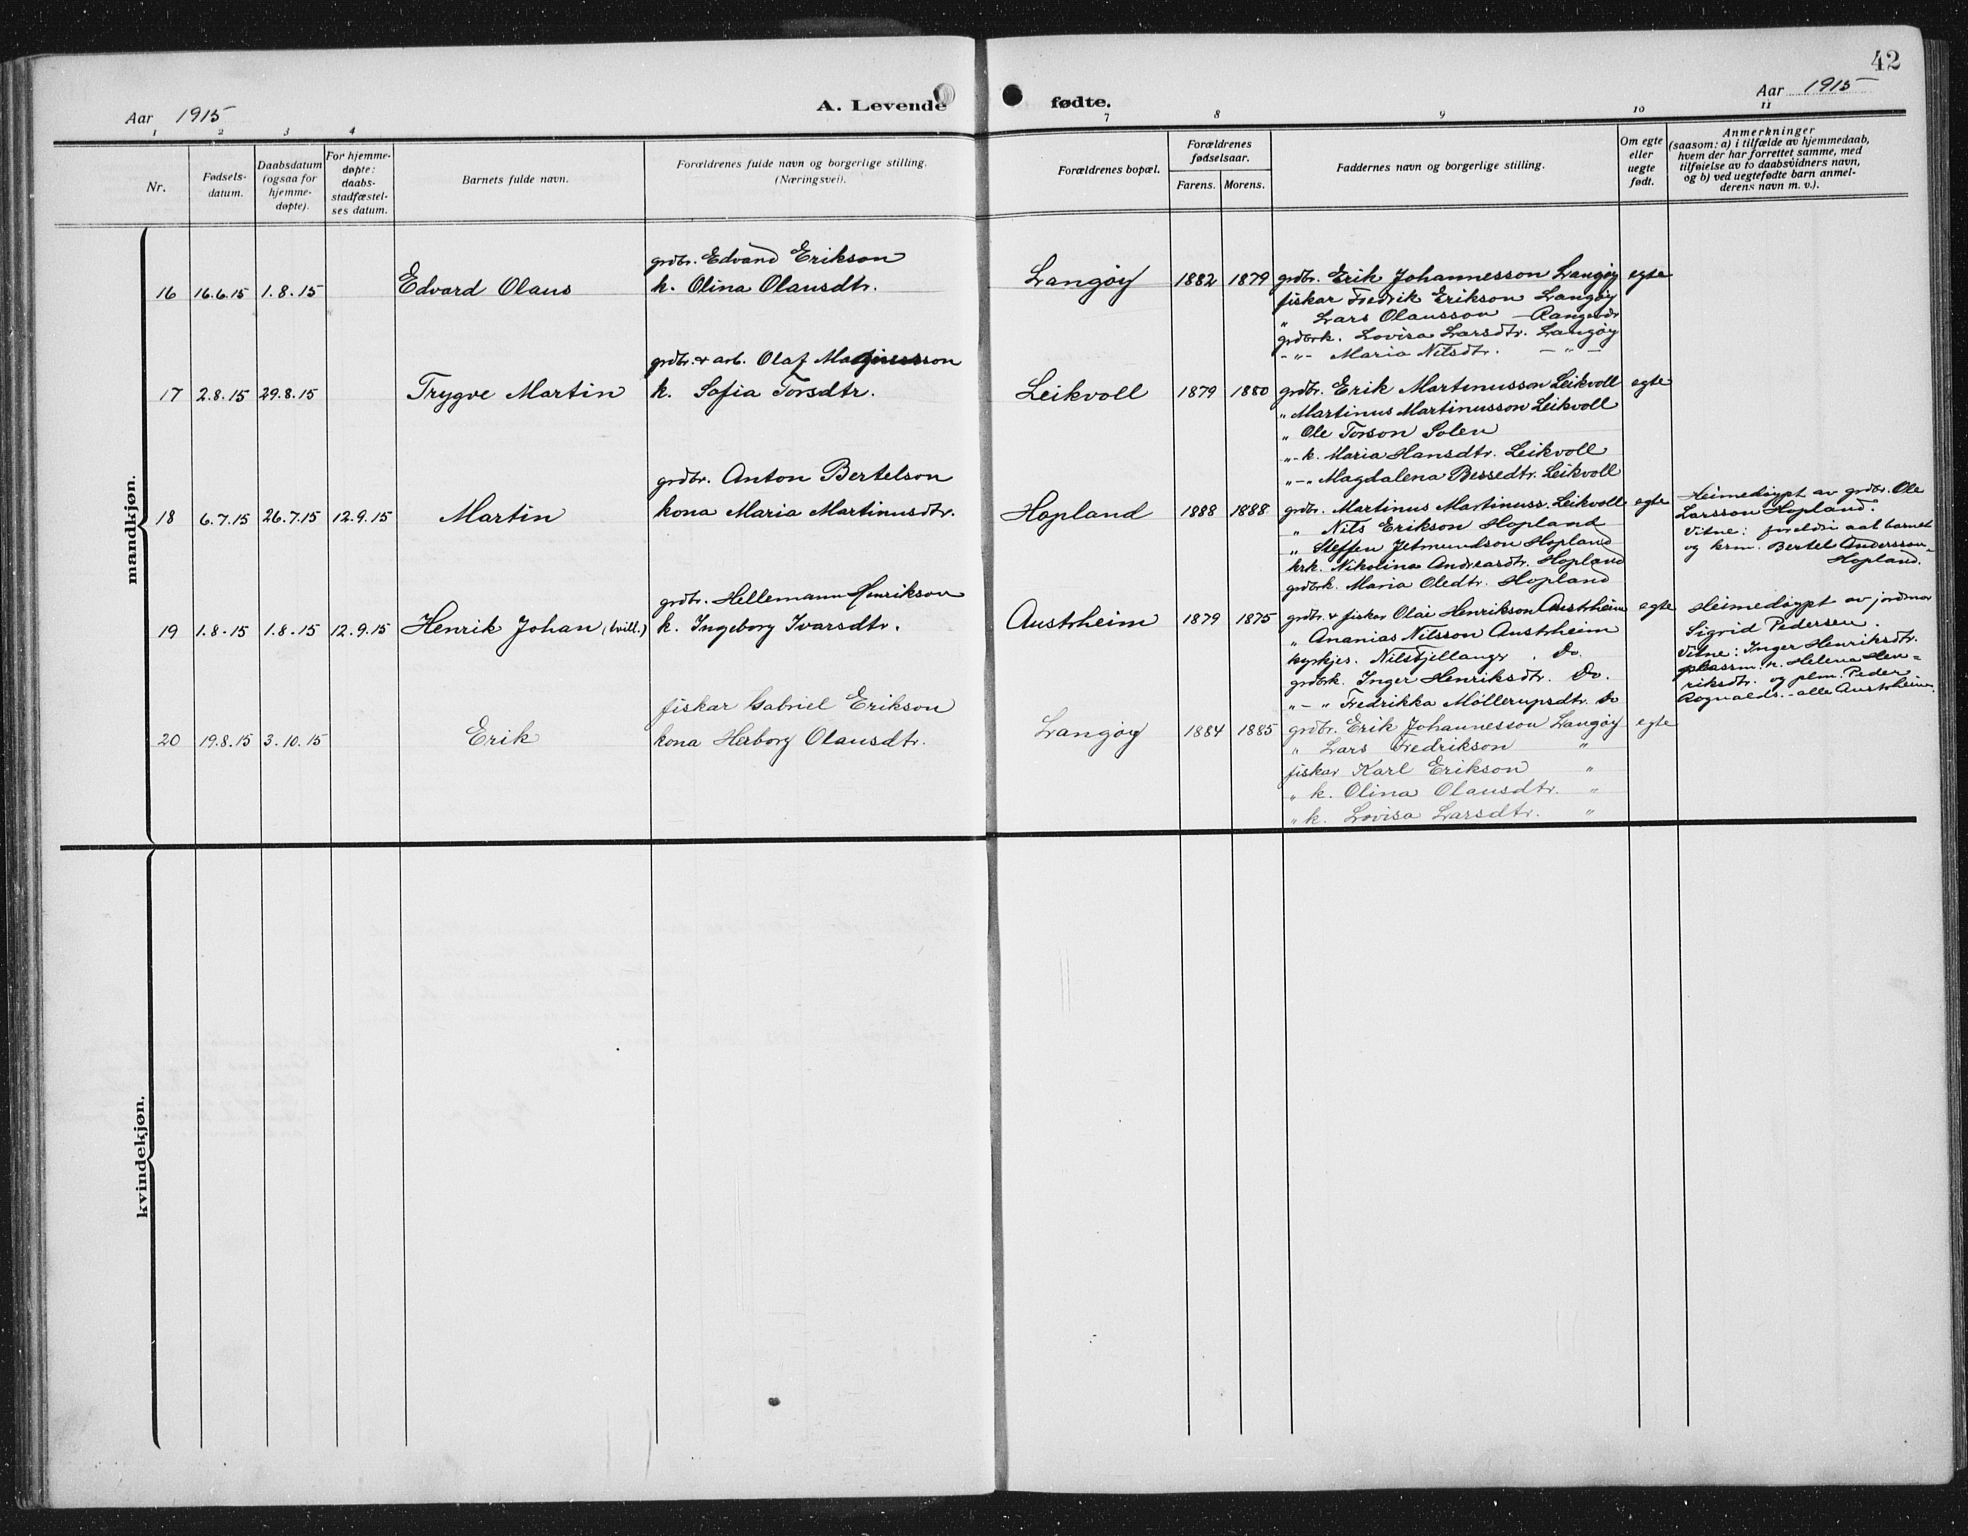 42
Aar 1915
A. Levende fødte.
Aar 1915
1 2 3 4 7 8 9 10 11
Nr.
Fødsels-
datum.
Daabsdatum
(ogsaa for
hjemme-
døpte).
For hjemme-
døpte:
daabs-
stadfæstel-
ses datum.
Barnets fulde navn.
Forældrenes fulde navn og borgerlige stilling.
(Næringsvei).
Forældrenes bopæl.
Forældrenes
fødselsaar.
Farens. Morens.
Faddernes navn og borgerlige stilling.
Om egte
eller
uegte
født.
Anmerkninger
(saasom: a) i tilfælde av hjemmedaab,
hvem der har forrettet samme, med
tilføielse av to daabsvidners navn,
og b) ved uegtefødte barn anmel-
derens navn m. v.).
mandkjøn.
grdbr. Edvard Erikson
16 16.6.15 1.8.15 Edvard Olaus k. Olina Olausdtr. Langøy 1882 1879 grdbr. Erik Johannesson Langøy egte
fiskar Fredrik Erikson Langøy
" Lars Olausson — Rangøi
grdbrk. Lovisa Larsdtr. Langøy
-"- Maria Nilsdtr. -"-
grdbr. & arb. Olaf Magnusson
17 2.8.15 29.8.15 Trygve Martin k. Sofia Torsdtr. Leikvoll 1879 1880 grdbr. Erik Martinusson Leikvoll egte
" Martinus Martinusson Leikvoll
" Ole Torson Solen
"-k. Maria Hansdtr. Leikvoll
"-" Magdalena Bessedtr. Leikvoll
grdbr. Anton Bertelson
18 6.7.15 26.7.15 12.9.15 Martin kona Maria Martinusdtr. Hopland 1888 1888 grdbr. Martinus Martinuss. Leikvoll egte
" Nils Erikson Hopland
" Steffen Jetmundson Hopland
krk. Nikolina Andreasdtr. Hopland
grdbrk. Maria Oledtr. Hopland
Heimedøypt av grdbr. Ole
Larsson Hopland.
Vitne: foreldri aat barnet
og krm. Bertel Andersson
Hopland.
grdbr. Hellemann Henrikson
19 1.8.15 1.8.15 12.9.15 Henrik Johan (tvill.) k. Ingeborg Ivarsdtr. Austrheim 1879 1875 grdbr. & fiskar Olai Henrikson Austrheim egte
" Ananias Nilsson Austrheim
kyrkjes. Nils Fjellanger. Do.
grdbrk. Inger Henriksdtr. Do.
"-" Fredrikka Möllerupsdtr. Do
Heimedøypt av jordmor
Sigrid Pedersen.
Vitne: Inger Henriksdtr.
plassm. k. Helena Hen-
riksdtr. og plm. Peder
Rognalds. - alle Austrheim.
fiskar Gabriel Erikson
20 19.8.15 3.10.15 Erik kona Herborg Olausdtr. Langøy 1884 1885 grdbr. Erik Johannesson Langøy egte
" Lars Fredrikson "
fiskar Karl Erikson "
" k. Olina Olausdtr. "
" k. Lovisa Larsdtr. "
kvindekjøn.